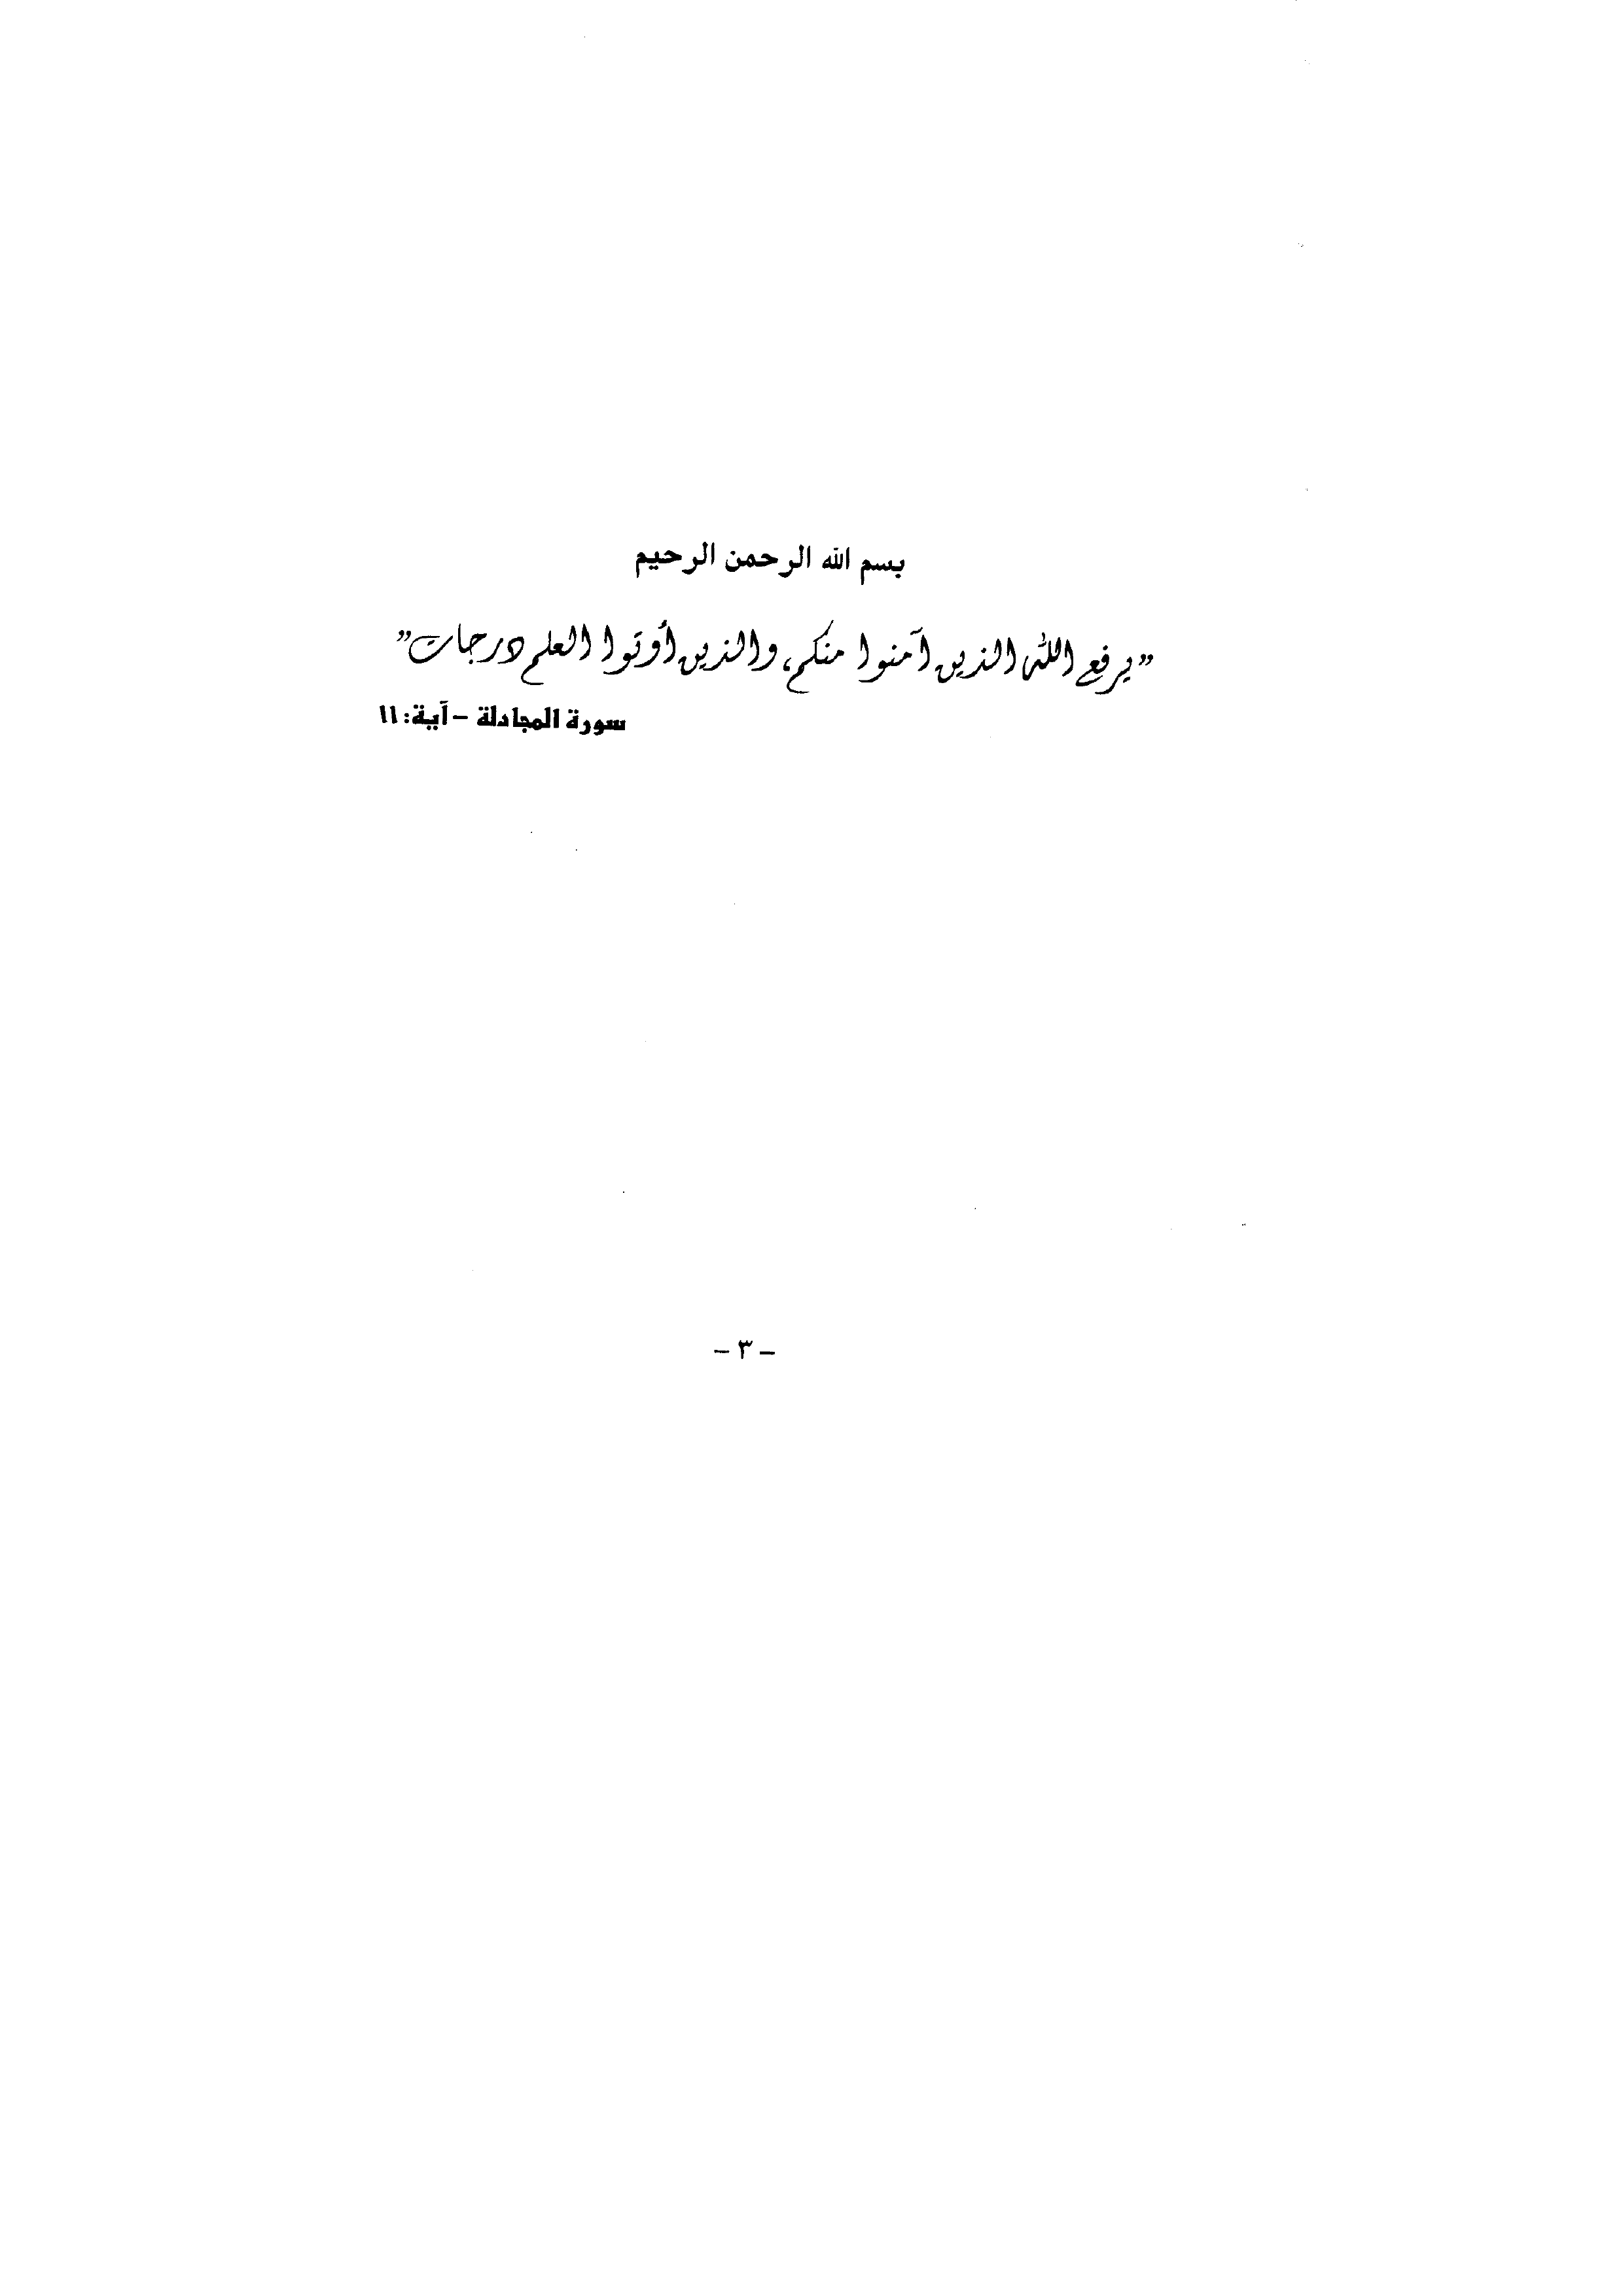 بسم الله الرحمن الرحيم
”يرفع الله الذين آمنوا منكم، والذين أوتوا العلم درجات”
سورة المجادلة – آية: ١١
– ٣ –